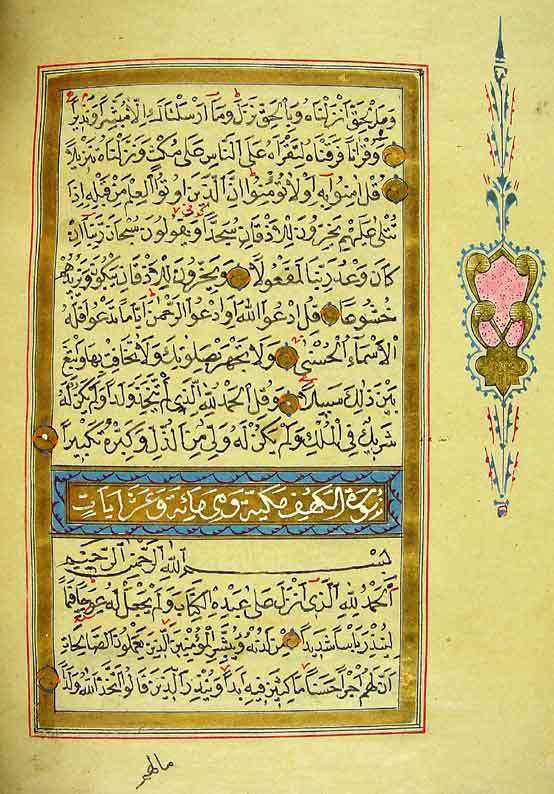 وبالحق انزلناه وبالحق نزل وما ارسلناك الا مبشرا ونذيرا
وقرانا فرقناه لتقراه على الناس على مكث ونزلناه تنزيلا
قل امنوا به اولا تؤمنوا ان الذين اوتوا العلم من قبله اذا
يتلى عليهم يخرون للاذقان سجدا ويقولون سبحان ربنا ان
كان وعد ربنا لمفعولا ويخرون للاذقان يبكون ويزيدهم
خشوعا قل ادعوا الله او ادعوا الرحمن ايا ما تدعوا فله
الاسماء الحسنى ولا تجهر بصلوتك ولا تخافت بها وابتغ
بين ذلك سبيلا وقل الحمد لله الذي لم يتخذ ولدا ولم يكن له
شريك في الملك ولم يكن له ولي من الذل وكبره تكبيرا
سورة الكهف مكية وهي مائة وعشر ايات
بسم الله الرحمن الرحيم
الحمد لله الذي انزل على عبده الكتاب ولم يجعل له عوجا قيما
لينذر باسا شديدا من لدنه ويبشر المؤمنين الذين يعملون الصالحات
ان لهم اجرا حسنا ماكثين فيه ابدا وينذر الذين قالوا اتخذ الله ولدا
مالهم